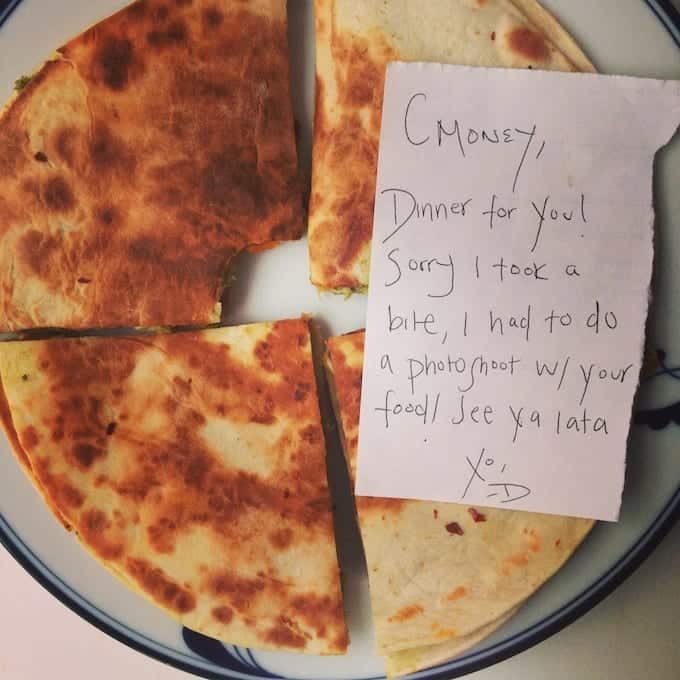 CMONEY,
Dinner for You!
Sorry I took a
bite, I had to do
a photoshoot w/ your
food! See ya lata
Xo,
-D